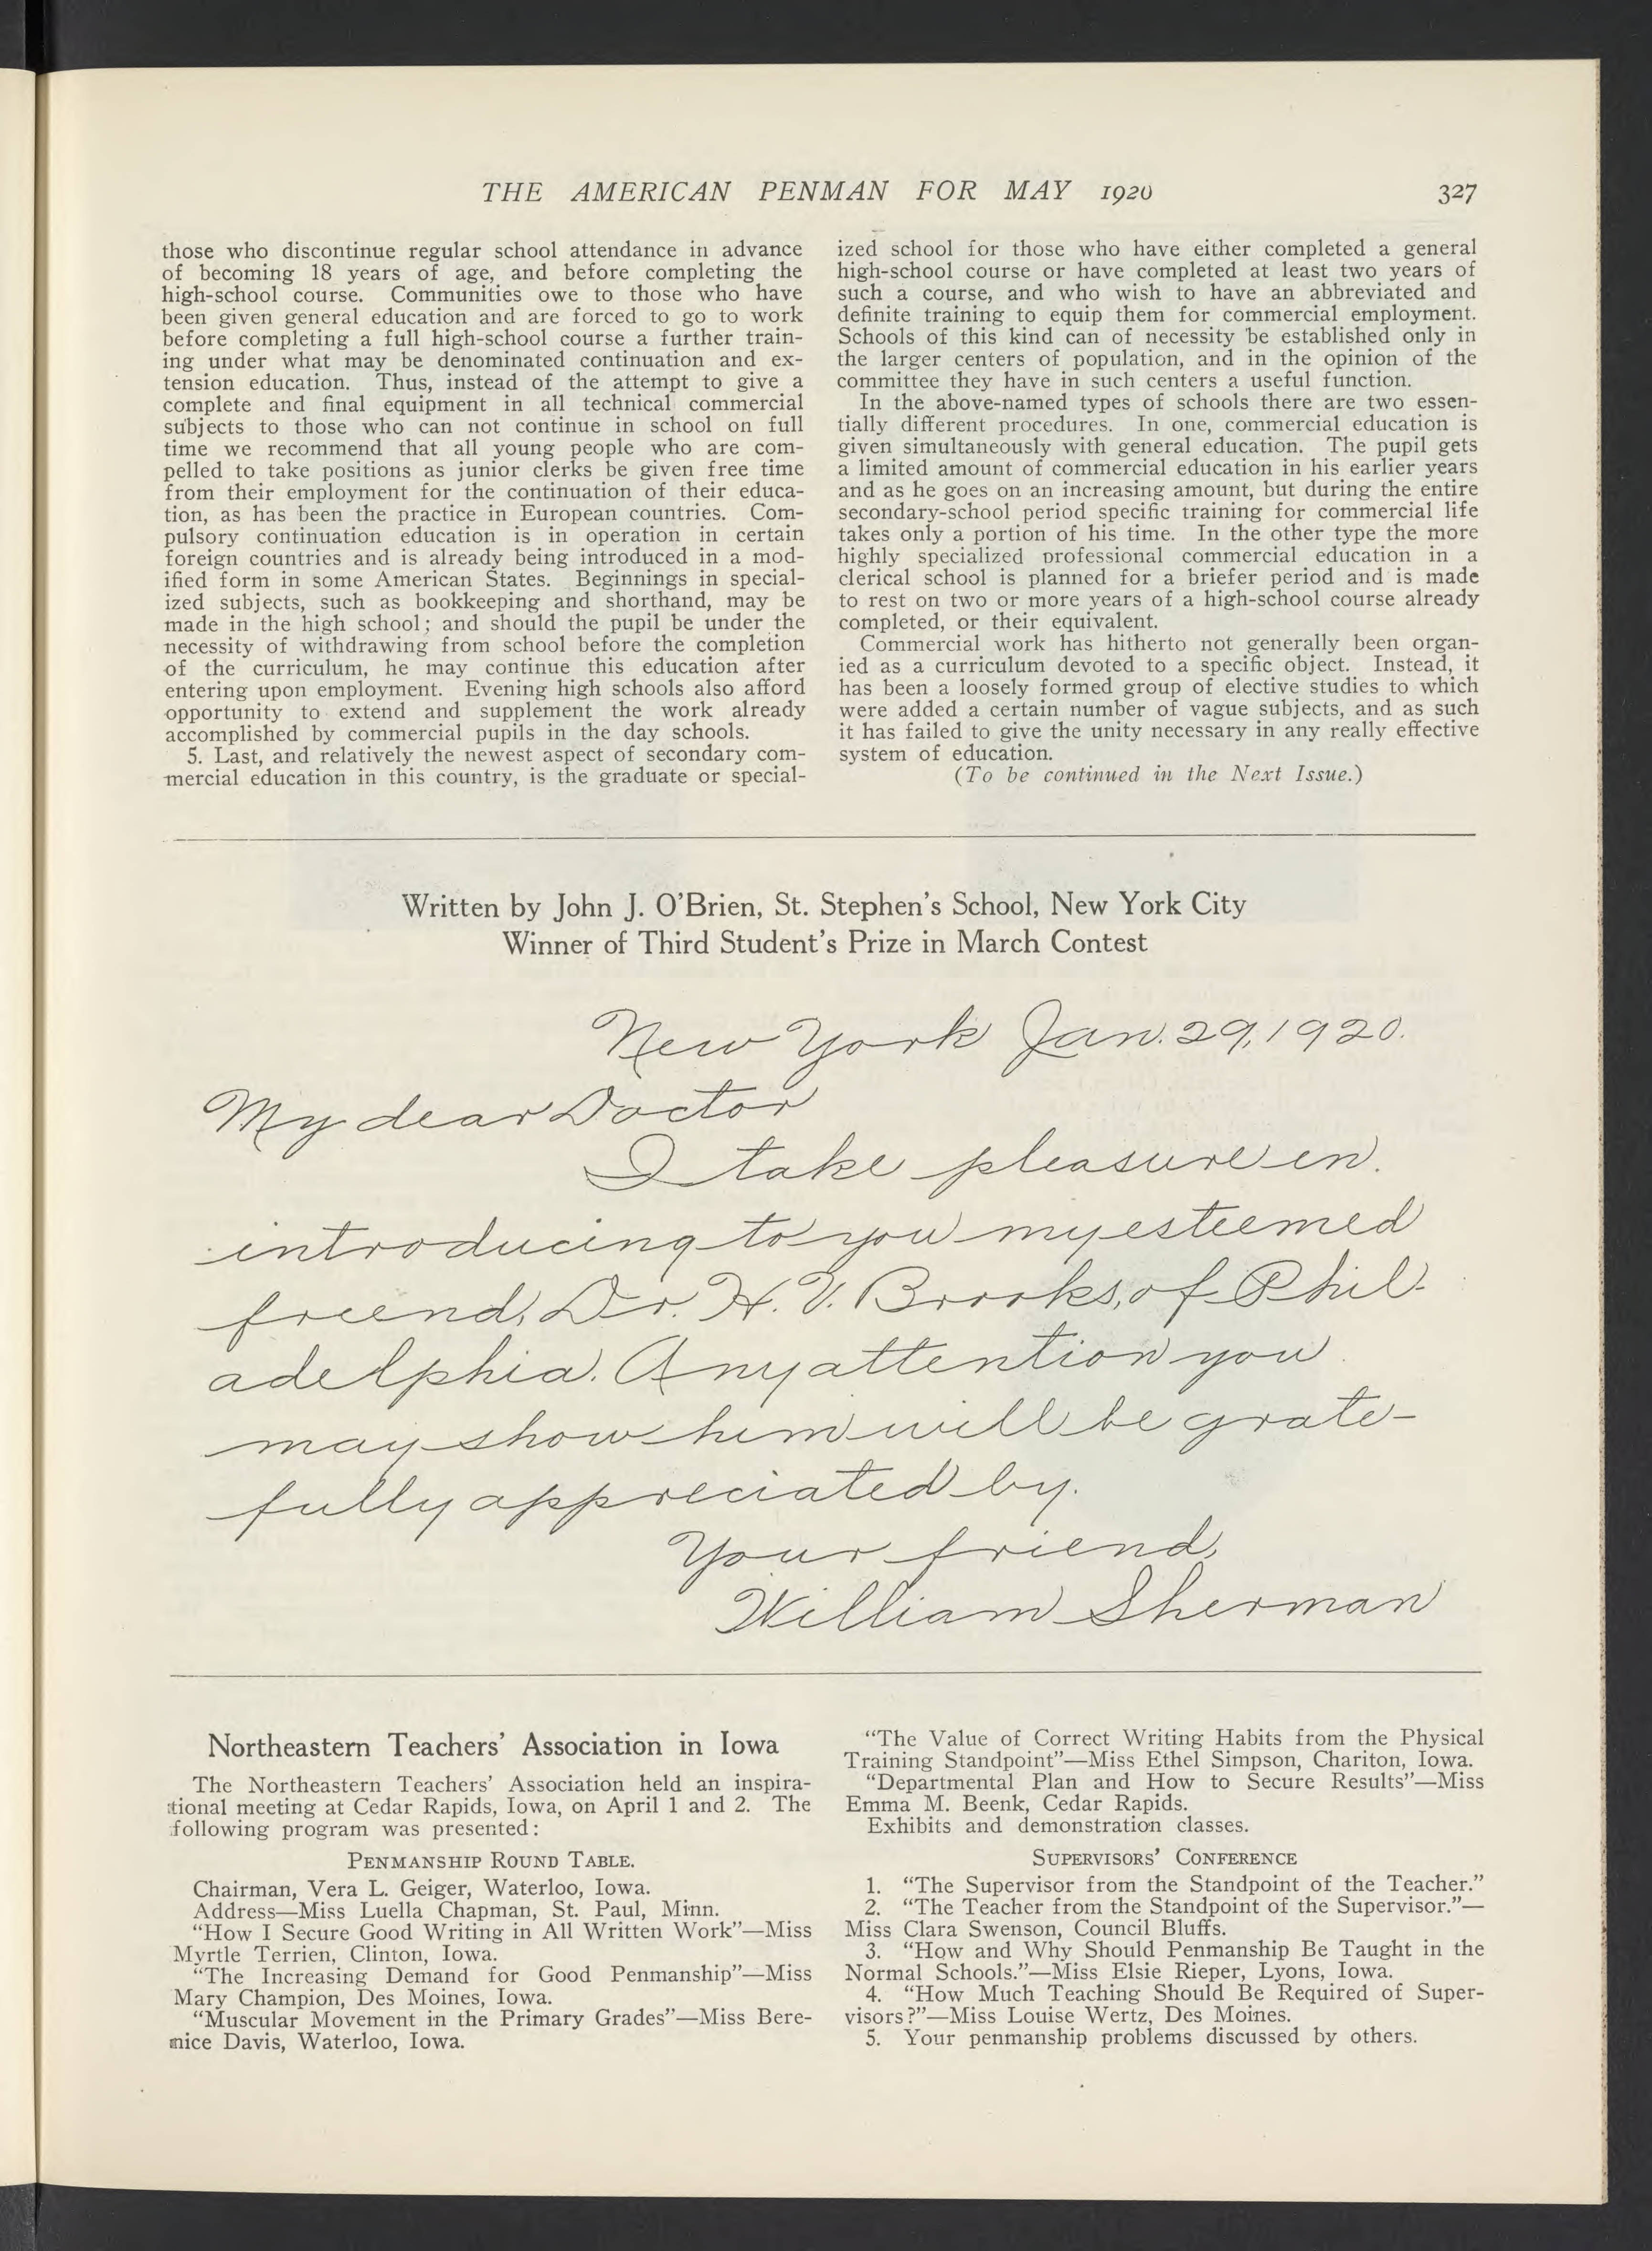 THE AMERICAN PENMAN FOR MAY 1920 327
those who discontinue regular school attendance in advance
of becoming 18 years of age, and before completing the
high-school course. Communities owe to those who have
been given general education and are forced to go to work
before completing a full high-school course a further train-
ing under what may be denominated continuation and ex-
tension education. Thus, instead of the attempt to give a
complete and final equipment in all technical commercial
subjects to those who can not continue in school on full
time we recommend that all young people who are com-
pelled to take positions as junior clerks be given free time
from their employment for the continuation of their educa-
tion, as has been the practice in European countries. Com-
pulsory continuation education is in operation in certain
foreign countries and is already being introduced in a mod-
ified form in some American States. Beginnings in special-
ized subjects, such as bookkeeping and shorthand, may be
made in the high school; and should the pupil be under the
necessity of withdrawing from school before the completion
of the curriculum, he may continue this education after
entering upon employment. Evening high schools also afford
opportunity to extend and supplement the work already
accomplished by commercial pupils in the day schools.
5. Last, and relatively the newest aspect of secondary com-
mercial education in this country, is the graduate or special-
ized school for those who have either completed a general
high-school course or have completed at least two years of
such a course, and who wish to have an abbreviated and
definite training to equip them for commercial employment.
Schools of this kind can of necessity be established only in
the larger centers of population, and in the opinion of the
committee they have in such centers a useful function.
In the above-named types of schools there are two essen-
tially different procedures. In one, commercial education is
given simultaneously with general education. The pupil gets
a limited amount of commercial education in his earlier years
and as he goes on an increasing amount, but during the entire
secondary-school period specific training for commercial life
takes only a portion of his time. In the other type the more
highly specialized professional commercial education in a
clerical school is planned for a briefer period and is made
to rest on two or more years of a high-school course already
completed, or their equivalent.
Commercial work has hitherto not generally been organ-
ied as a curriculum devoted to a specific object. Instead, it
has been a loosely formed group of elective studies to which
were added a certain number of vague subjects, and as such
it has failed to give the unity necessary in any really effective
system of education.
(To be continued in the Next Issue.)
Written by John J. O'Brien, St. Stephen's School, New York City
Winner of Third Student's Prize in March Contest
New York Jan. 29, 1920.
My dear Doctor
I take pleasure in.
introducing to you my esteemed
friend, Dr. H. V. Brooks, of Phil-
adelphia. Any attention you
may show him will be grate-
fully appreciated by.
Your friend,
William Sherman
Northeastern Teachers' Association in Iowa
The Northeastern Teachers' Association held an inspira-
tional meeting at Cedar Rapids, Iowa, on April 1 and 2. The
following program was presented:
PENMANSHIP ROUND TABLE.
Chairman, Vera L. Geiger, Waterloo, Iowa.
Address—Miss Luella Chapman, St. Paul, Minn.
"How I Secure Good Writing in All Written Work"—Miss
Myrtle Terrien, Clinton, Iowa.
"The Increasing Demand for Good Penmanship"—Miss
Mary Champion, Des Moines, Iowa.
"Muscular Movement in the Primary Grades"—Miss Bere-
nice Davis, Waterloo, Iowa.
"The Value of Correct Writing Habits from the Physical
Training Standpoint"—Miss Ethel Simpson, Chariton, Iowa.
"Departmental Plan and How to Secure Results"—Miss
Emma M. Beenk, Cedar Rapids.
Exhibits and demonstration classes.
SUPERVISORS' CONFERENCE
1. "The Supervisor from the Standpoint of the Teacher."
2. "The Teacher from the Standpoint of the Supervisor."—
Miss Clara Swenson, Council Bluffs.
3. "How and Why Should Penmanship Be Taught in the
Normal Schools."—Miss Elsie Rieper, Lyons, Iowa.
4. "How Much Teaching Should Be Required of Super-
visors?"—Miss Louise Wertz, Des Moines.
5. Your penmanship problems discussed by others.